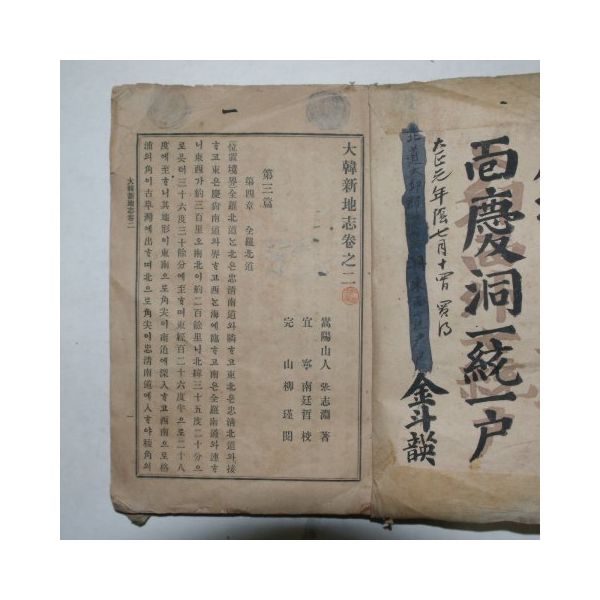 百慶洞一統一戶
金斗韺
大正元年陰七月十
大韓新地志卷之二
嵩陽山人 張志淵 著
宜寧 南廷哲 校
完山 柳瑾 閱
第三篇
第四章 全羅北道
位置境界 全羅北道는北은忠淸南道와隣고東北은忠淸北道와接
고東은慶尙南道와界고西는海에臨고南은全羅南道와連
니東西가約三百里오南北이約二百餘里니北緯三十五度二十分으
로븟터三十六度三十餘分에至며東經百二十六度半으로二十八
度에至니其地形이東南으로角尖이南道에深入며西南으로格
浦의角이古阜灣에出며北으로角尖이忠淸南道에入야稜角의
大韓新地志卷二
一